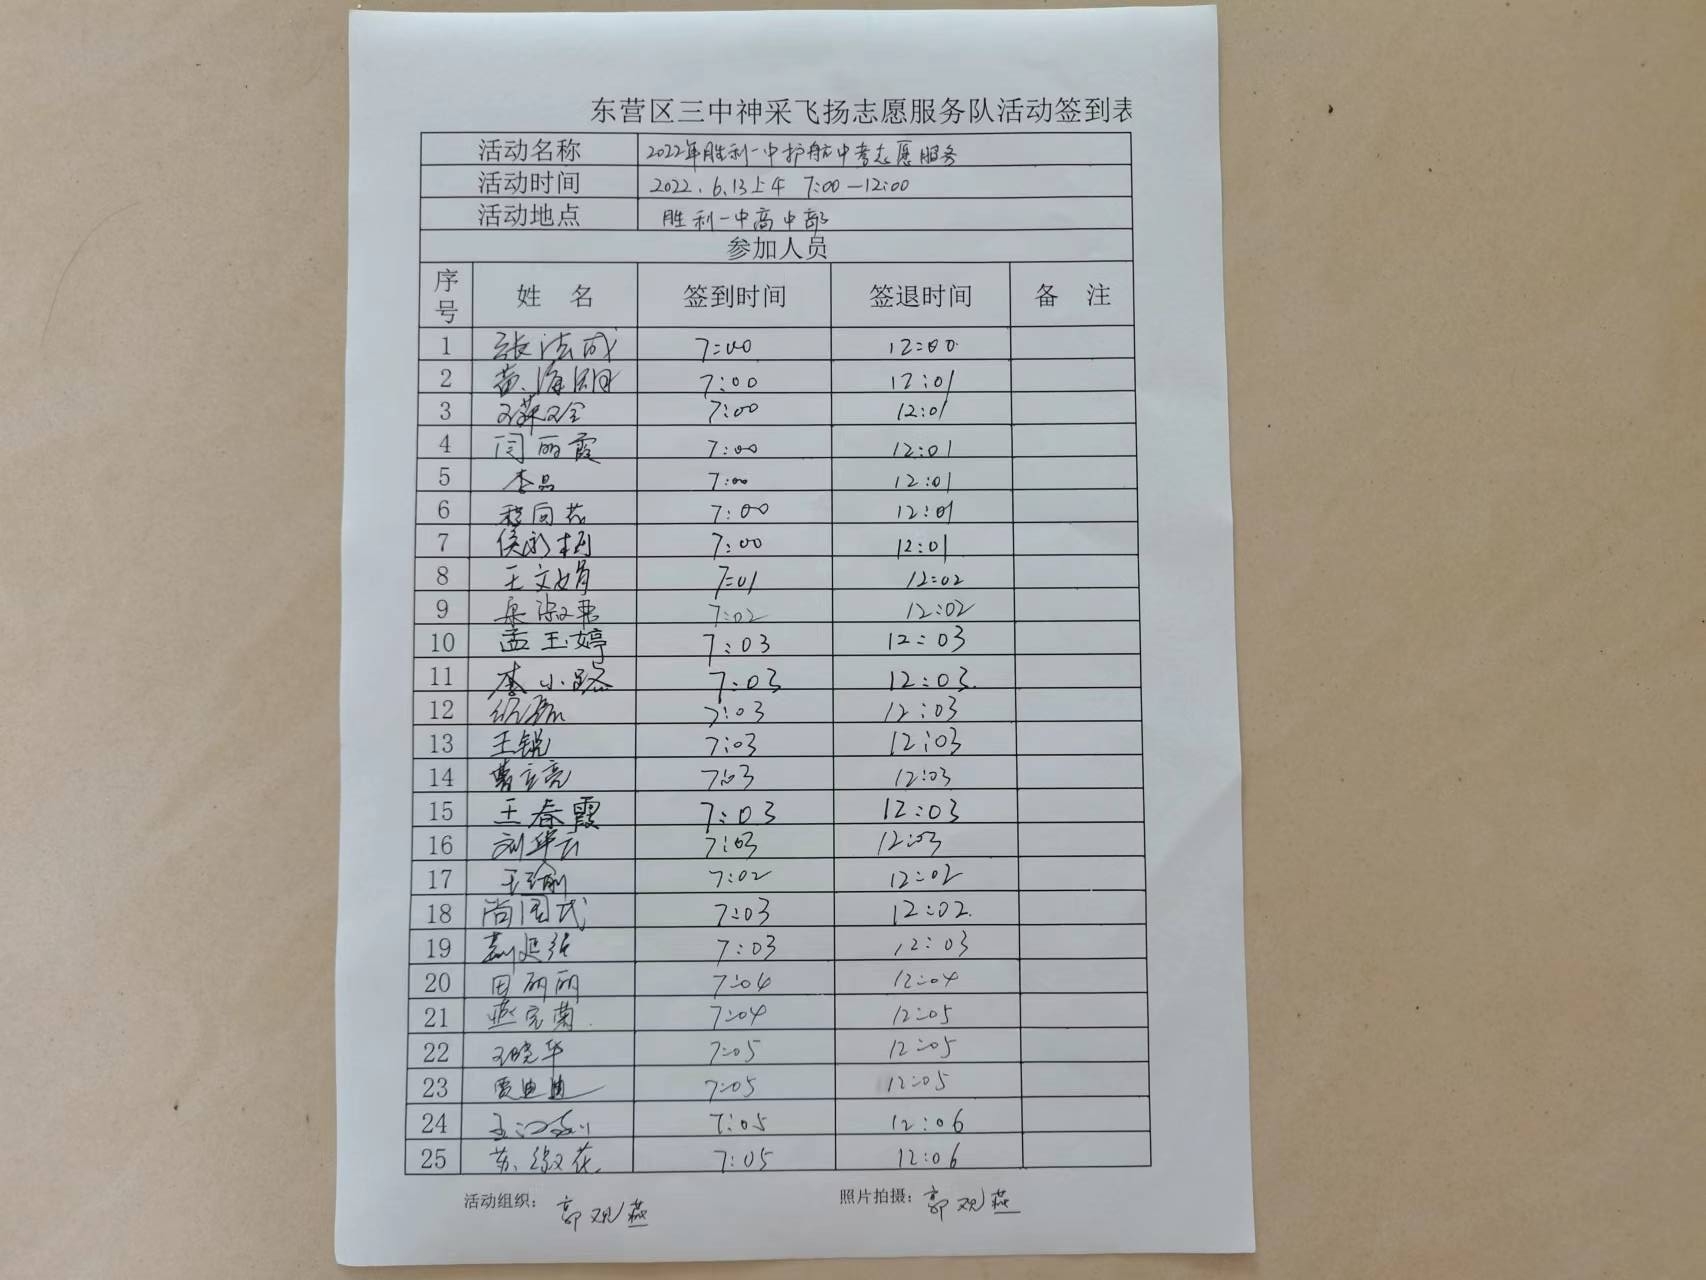 东营区三中神采飞扬志愿服务队活动签到表
活动名称 2022年胜利一中护航中考志愿服务
活动时间 2022.6.13上午 7:00—12:00
活动地点 胜利一中高中部
参加人员
序号 姓 名 签到时间 签退时间 备 注
1 张法成 7:00 12:00
2 黄海明 7:00 12:01
3 7:00 12:01
4 闫丽霞 7:00 12:01
5 李品 7:00 12:01
6 程同花 7:00 12:01
7 侯彩梅 7:00 12:01
8 王文娟 7:01 12:02
9 7:02 12:02
10 孟玉婷 7:03 12:03
11 李小路 7:03 12:03
12 7:03 12:03
13 王锐 7:03 12:03
14 曹立亮 7:03 12:03
15 王春霞 7:03 12:03
16 刘华云 7:03 12:03
17 王瑜 7:02 12:02
18 尚国武 7:03 12:02
19 7:03 12:03
20 田丽丽 7:04 12:04
21 燕完菊 7:04 12:05
22 王晓华 7:05 12:05
23 贾迪迪 7:05 12:05
24 7:05 12:06
25 苏淑花 7:05 12:06
活动组织： 郭观燕 照片拍摄： 郭观燕